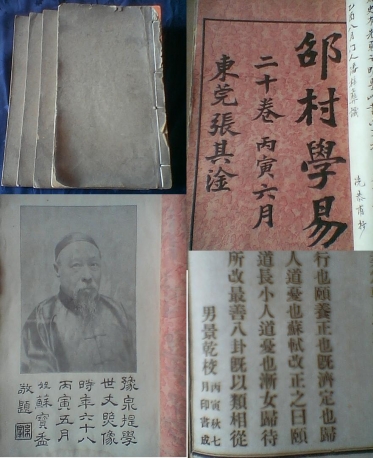 邵村學易
二十卷 丙寅六月
東莞張其淦
豫泉提學
世丈㷼像
時年六十八
丙寅五月
姪蘇寶盉
敬題
行也頤養正也既濟定也歸
人道憂也蘇軾改正之曰頤
道長小人道憂也漸女歸待
所改最善八卦既以類相從
男景乾校
丙寅秋七
月印書成